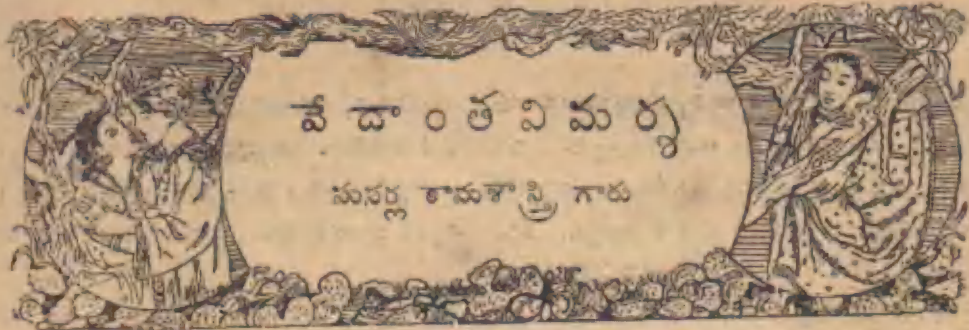 వే దా ం త వి మ ర్శ
సుసర్ల రామశాస్త్రి గారు